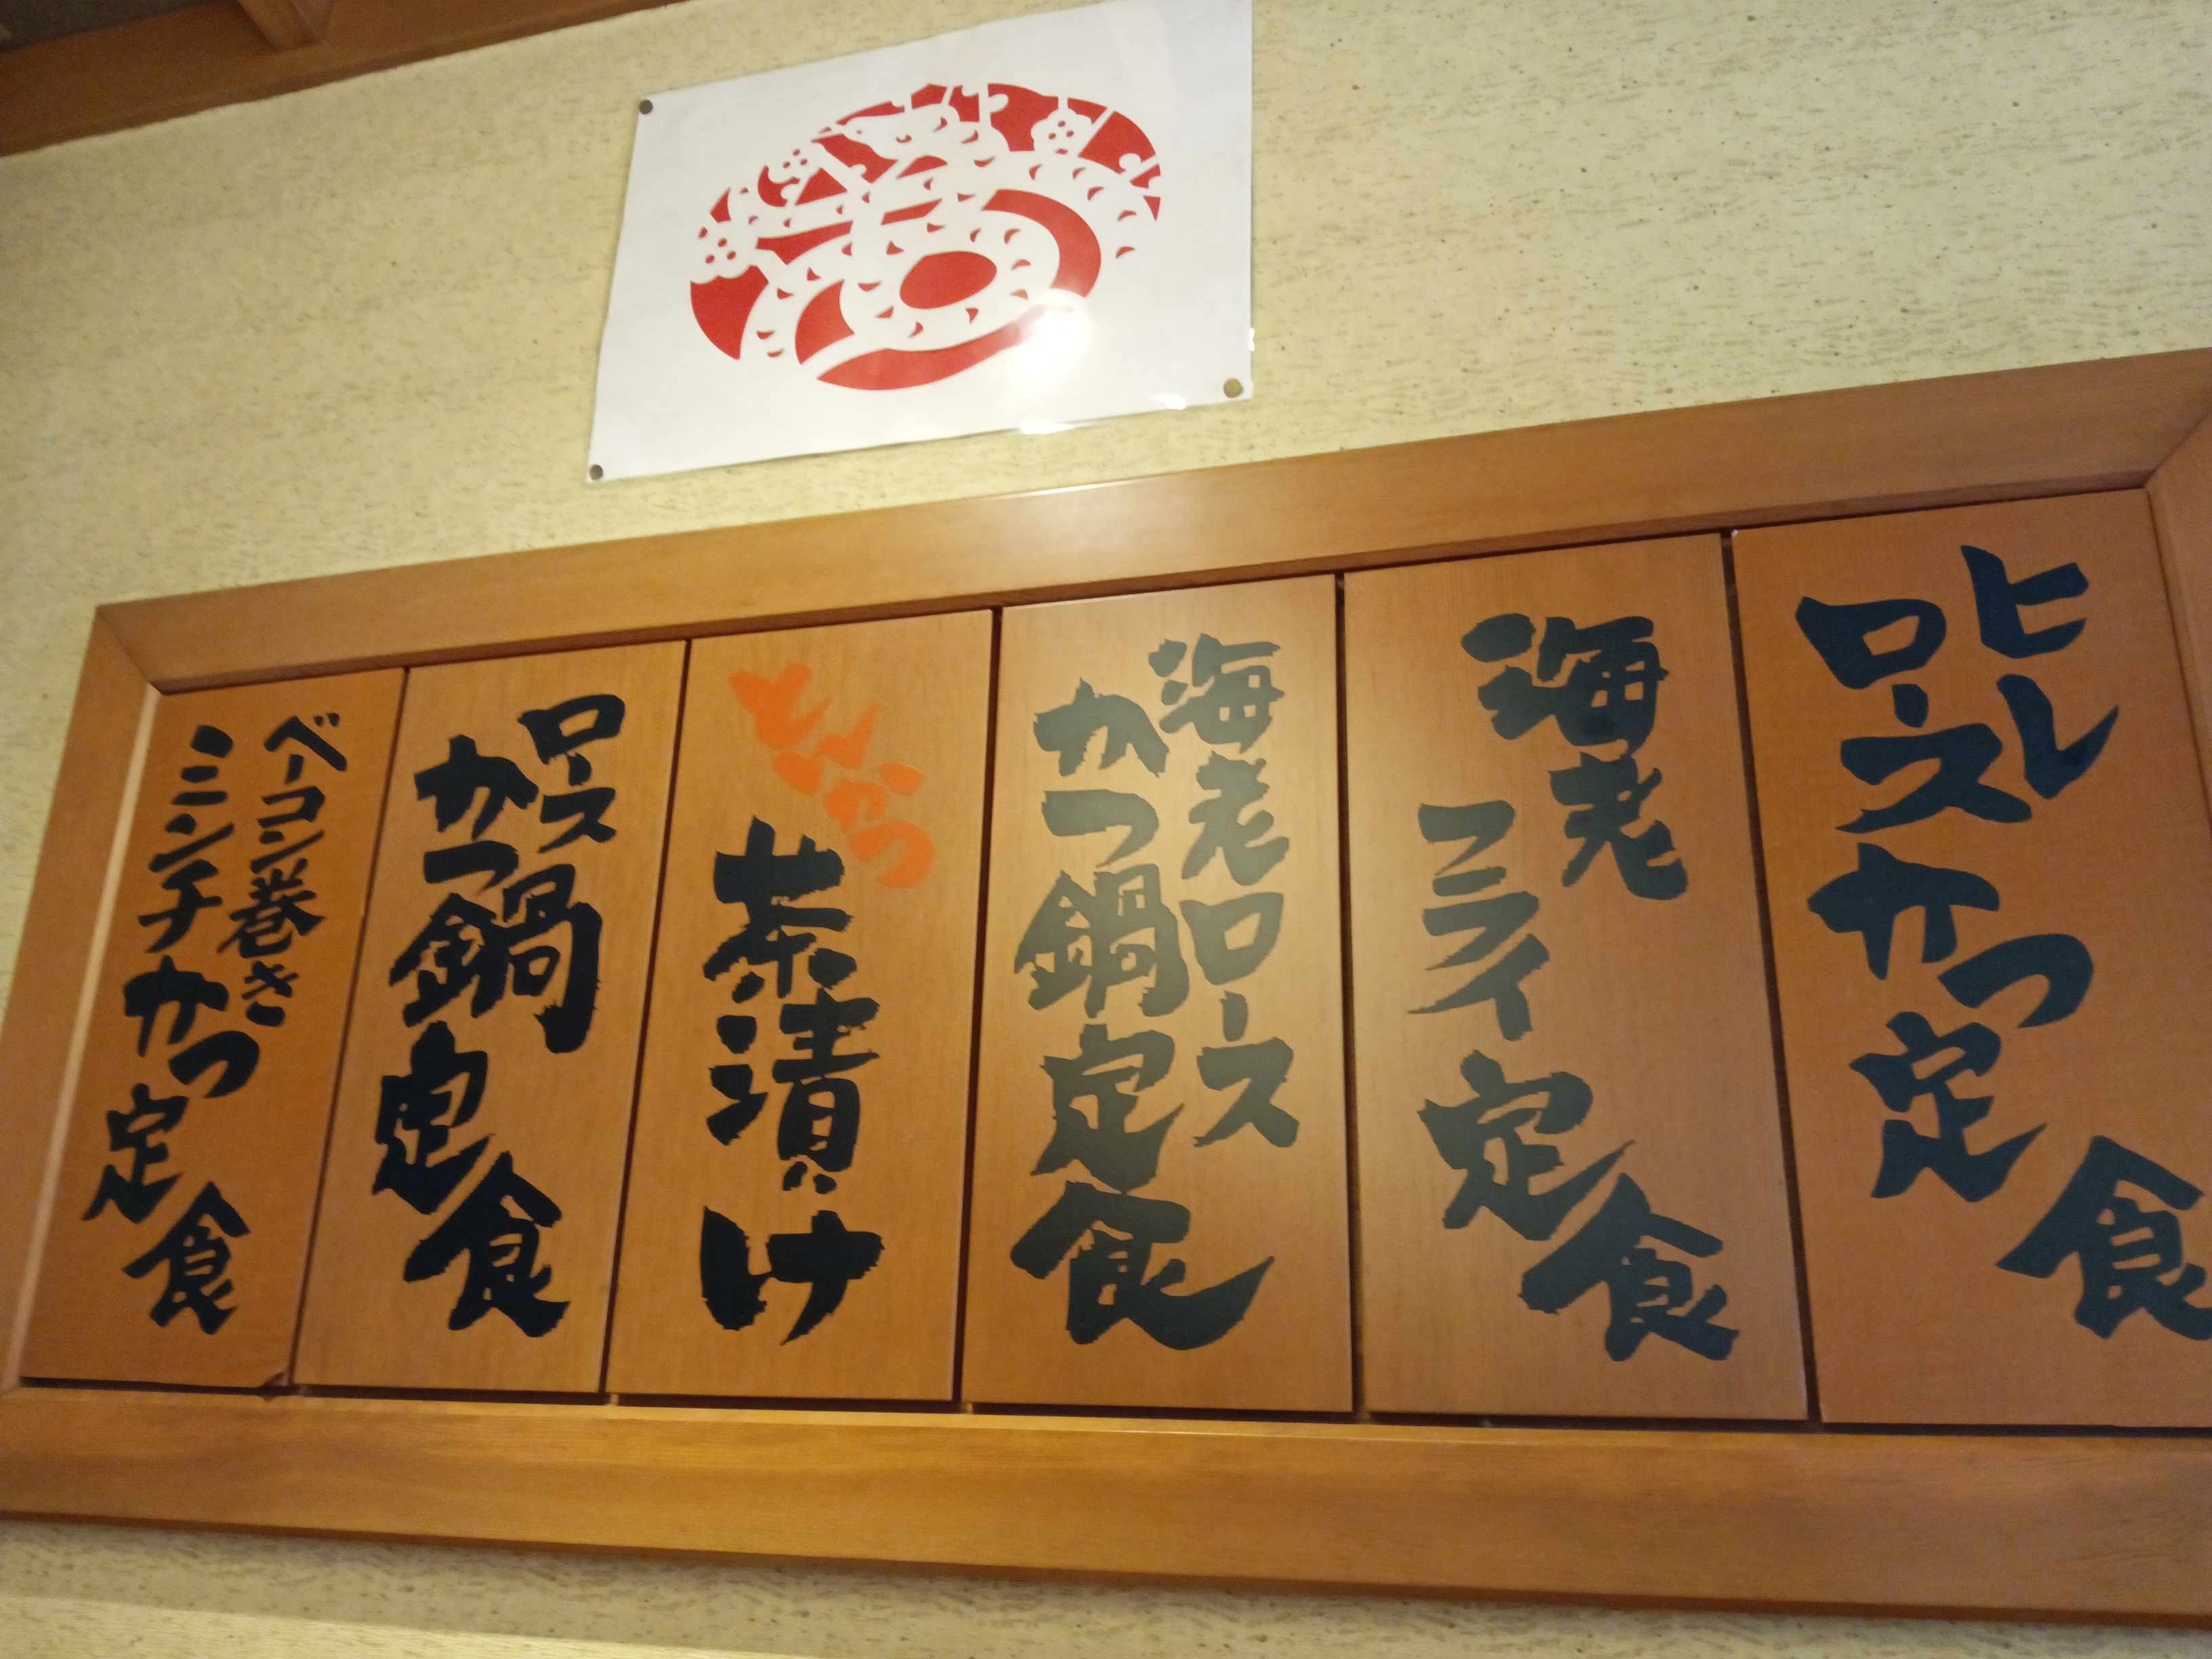 ヒレ
ロースかつ定食
海老
フライ定食
海老ロース
かつ鍋定食
とんかつ
茶漬け
ロース
かつ鍋定食
ベーコン巻き
ミンチかつ定食